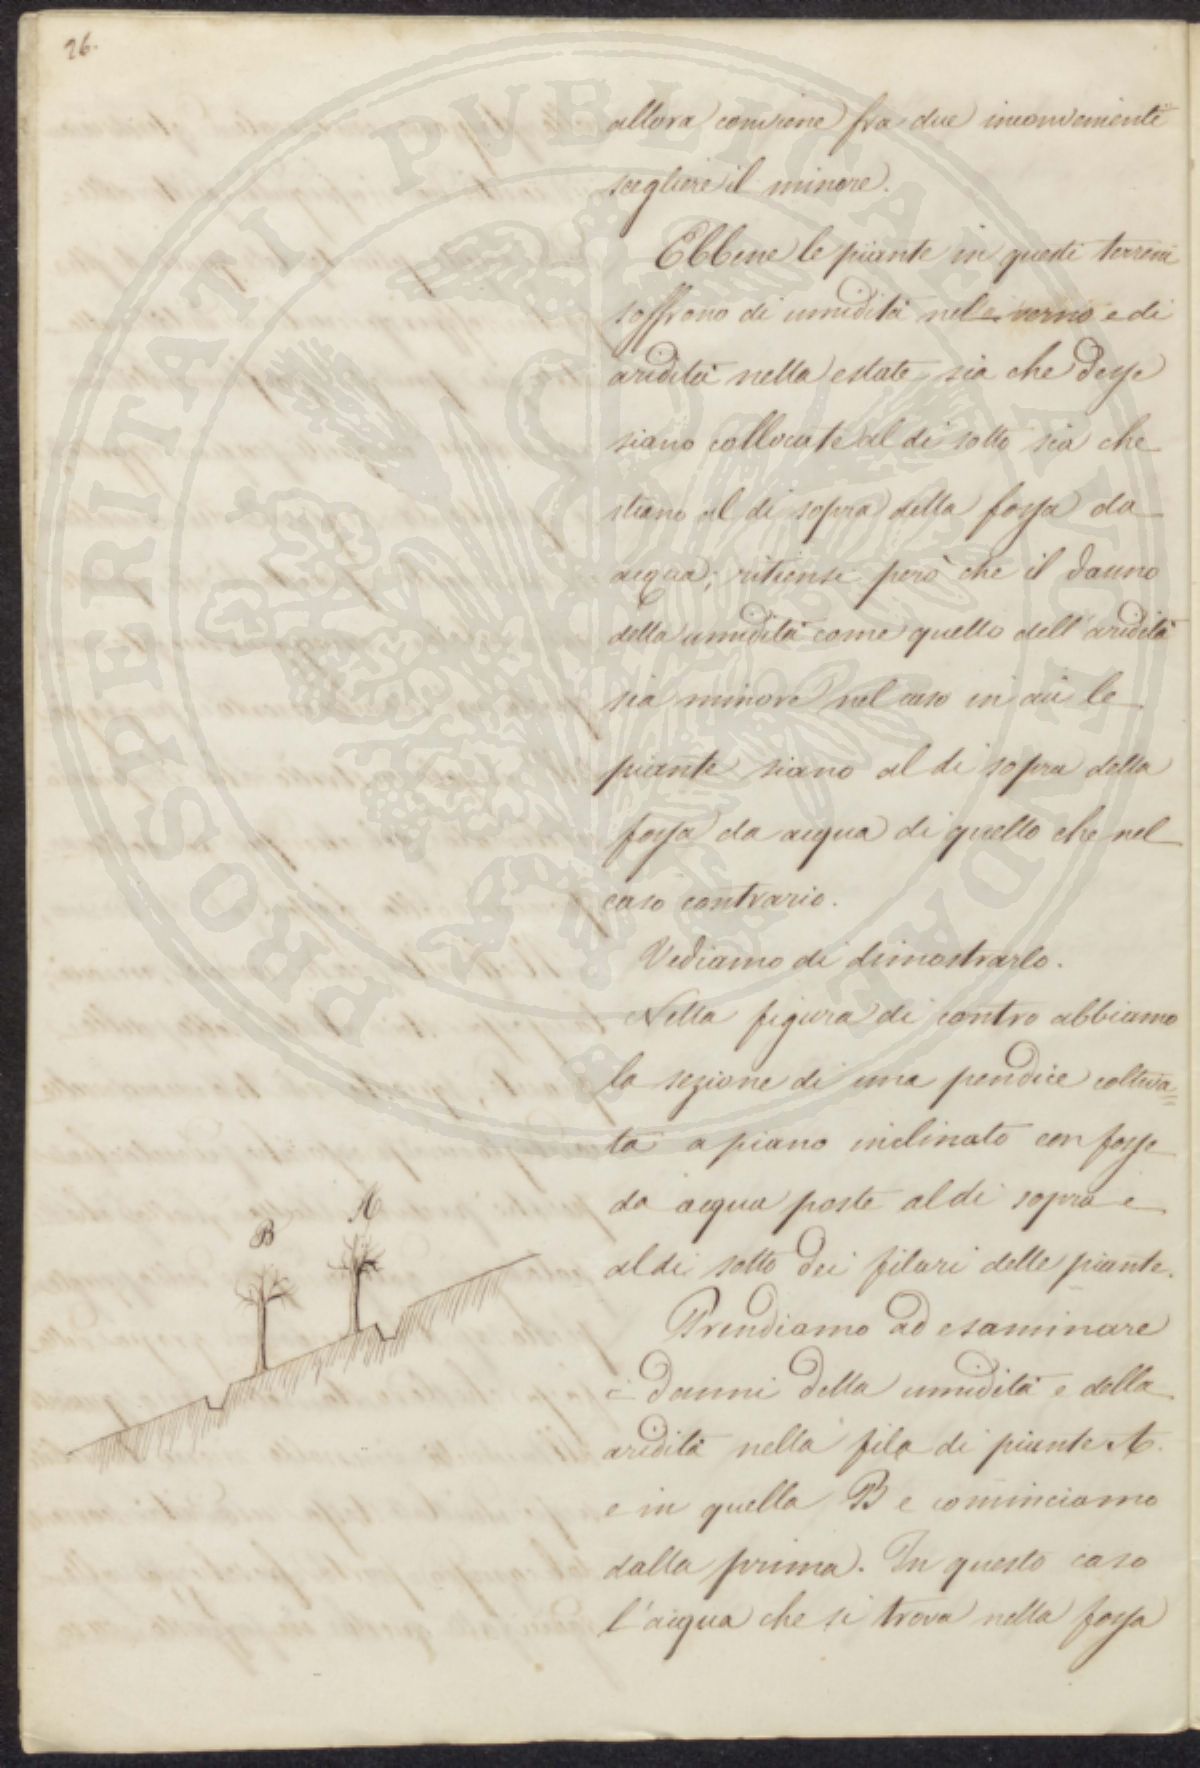 26.
allora conviene fra due inconvenienti
scegliere il minore.
Ebbene le piante in questi terreni
soffrono di umidità nel verno e di
aridità nella estate, sia che desse
siano collocate al di sotto sia che
stiano al di sopra della fossa da
acqua; ritiensi però che il danno
della umidità come quello dell'aridità
sia minore nel caso in cui le
piante siano al di sopra della
fossa da acqua di quello che nel
caso contrario.
Vediamo di dimostrarlo.
Nella figura di contro abbiamo
la sezione di una pendice coltiva=
ta a piano inclinato con fosse
da acqua poste al di sopra e
al di sotto dei filari delle piante.
Prendiamo ad esaminare
i danni della umidità e della
aridità nella fila di piante A.
e in quella B e cominciamo
dalla prima. In questo caso
l'acqua che si trova nella fossa
A
B
PROSPERITATI PVBLICAE AVGENDAE